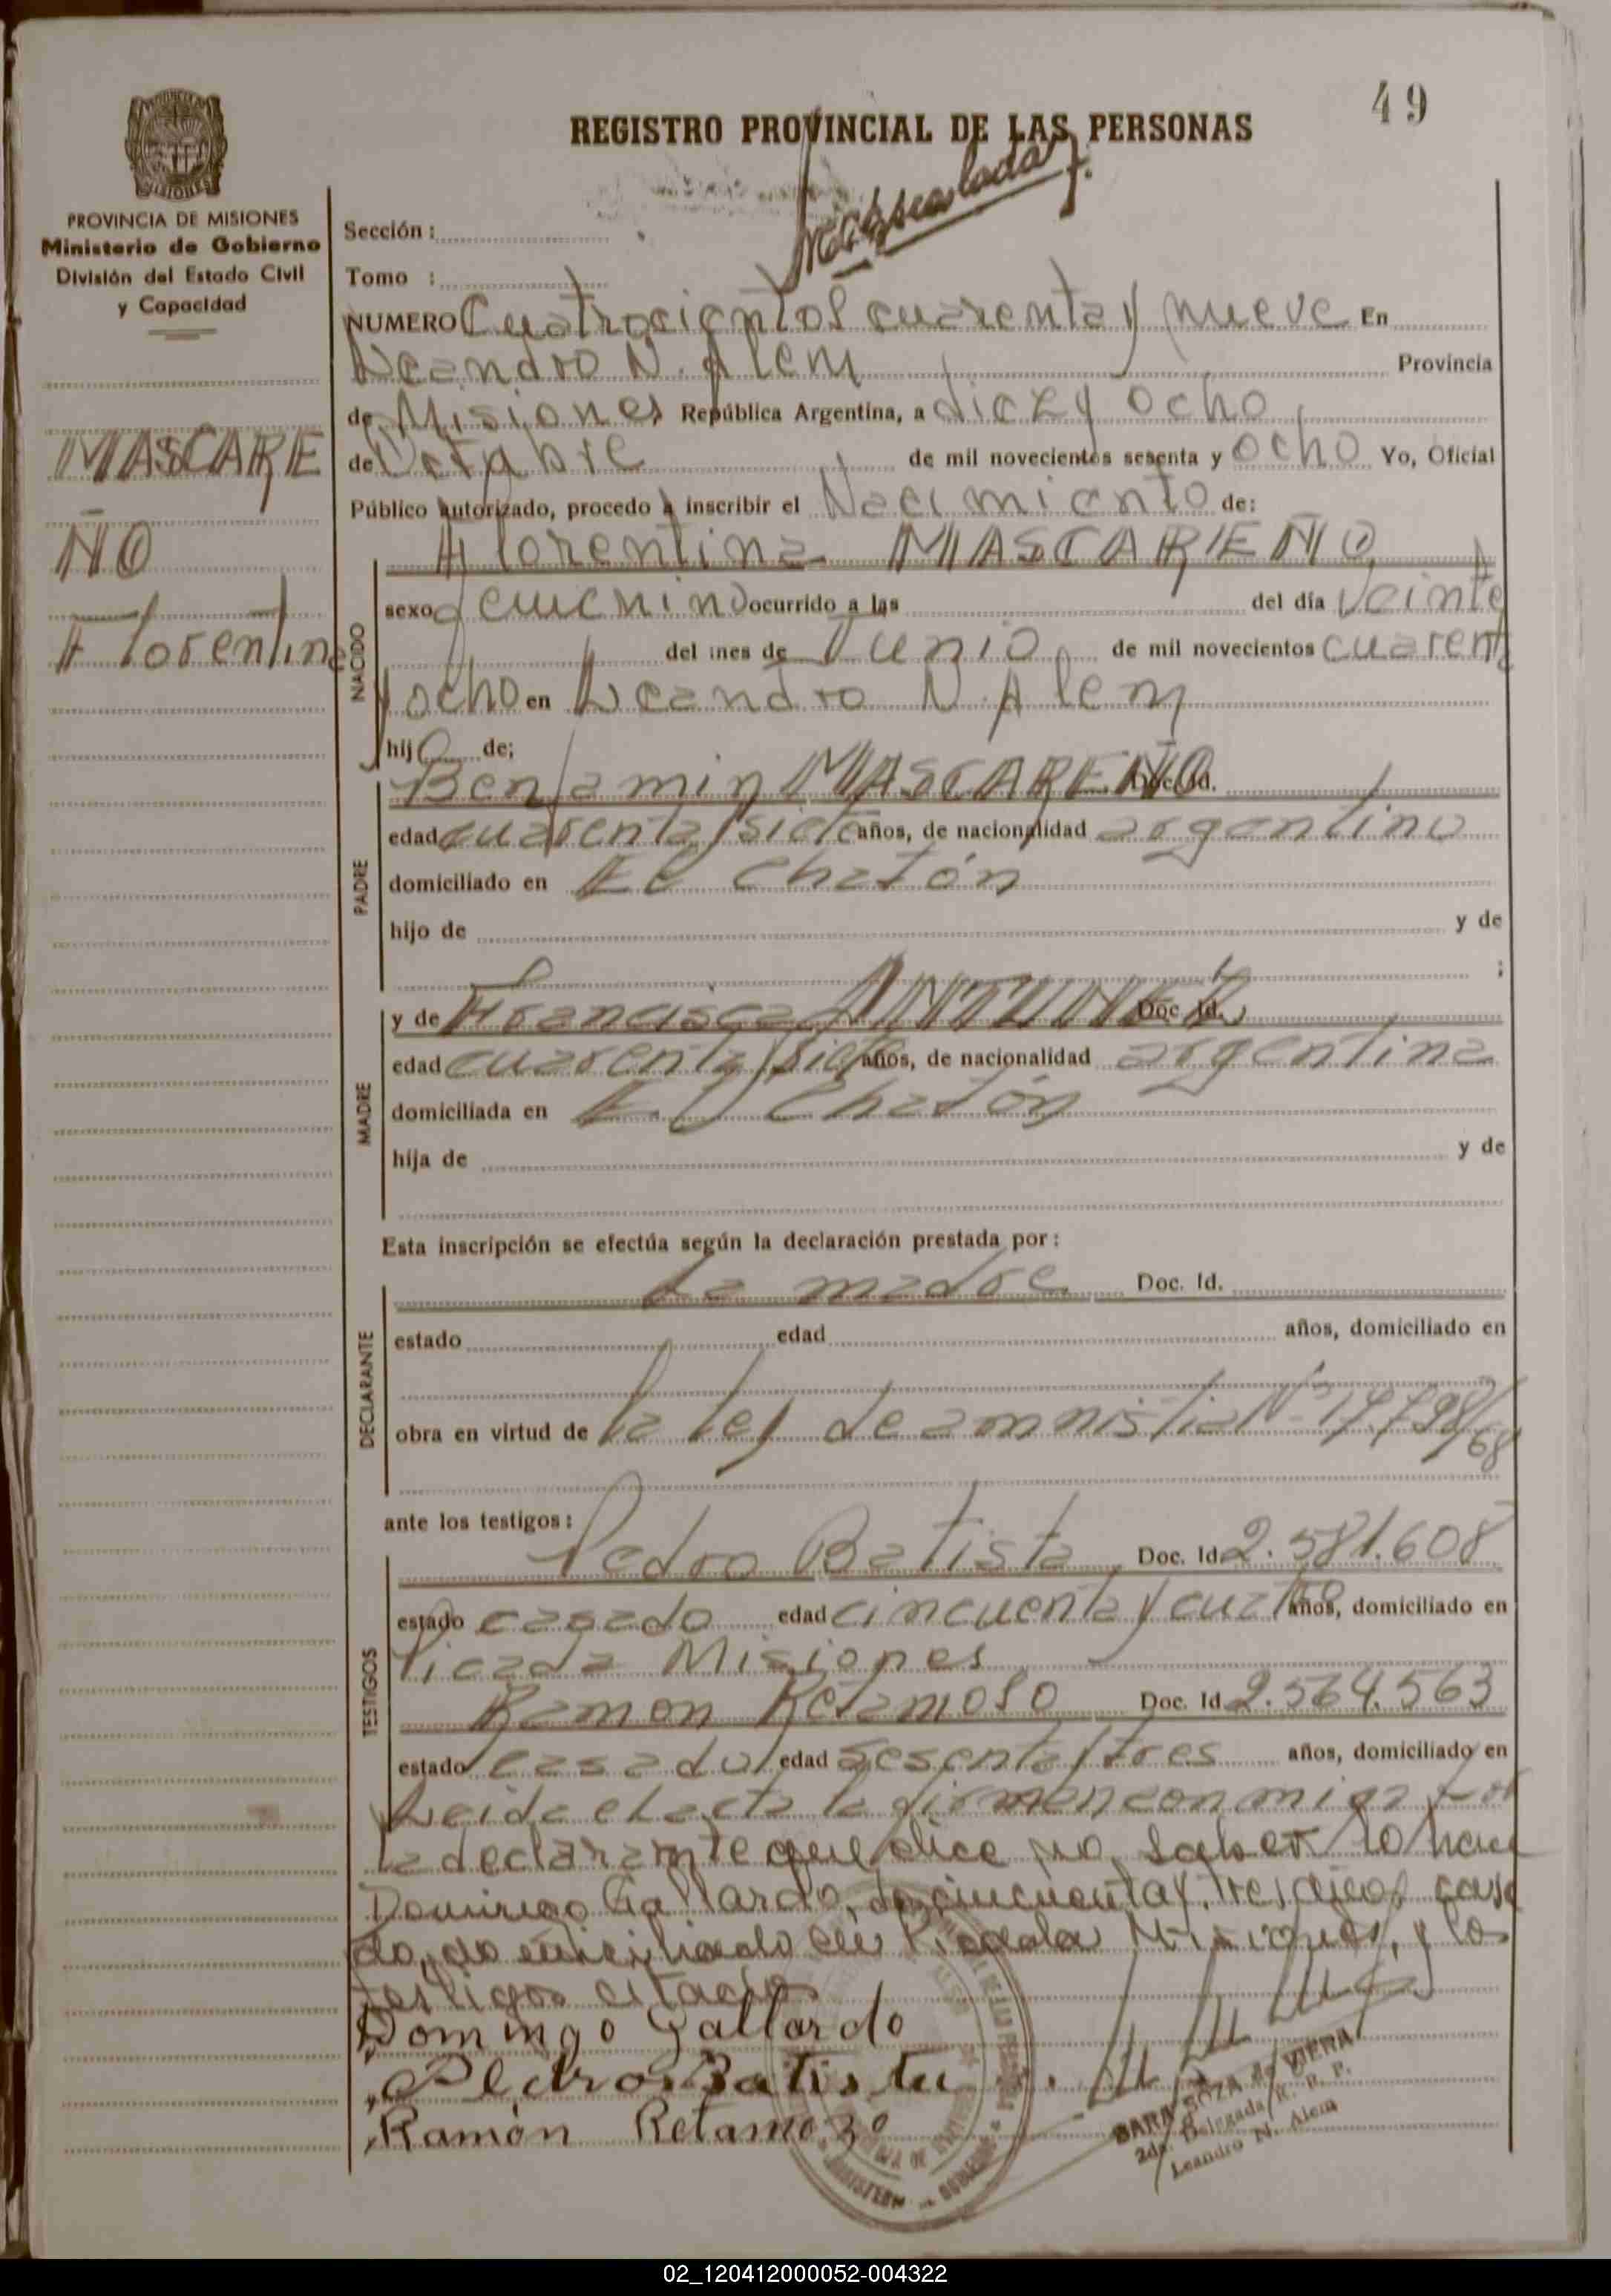 49
REGISTRO PROVINCIAL DE LAS PERSONAS
PROVINCIA DE MISIONES
Ministerio de Gobierno
División del Estado Civil
y Capacidad
Sección :
Tomo :
NUMERO Cuatrocientos cuarenta y nueve En
Leandro N. Alem Provincia
de Misiones República Argentina, a diez y ocho
de Octubre de mil novecientos sesenta y ocho Yo, Oficial
Público autorizado, procedo a inscribir el Nacimiento de:
MASCARE
ÑO
Florentina
NACIDO
Florentina MASCAREÑO
sexo femenino ocurrido a las del día veinte
del mes de Junio de mil novecientos cuarenta
y ocho en Leandro N. Alem
hija de;
PADRE
Benjamin MASCAREÑO Doc. Id.
edad cuarenta y siete años, de nacionalidad argentino
domiciliado en El Chatón
hijo de y de
;
MADRE
y de Francisca ANTUNEZ Doc. Id.
edad cuarenta y siete años, de nacionalidad argentina
domiciliada en El Chatón
hija de y de
Esta inscripción se efectúa según la declaración prestada por :
DECLARANTE
La madre Doc. Id.
estado edad años, domiciliado en
obra en virtud de la ley de amnistia Nº 17.798/68
ante los testigos :
TESTIGOS
Pedro Batista Doc. Id. 2.581.608
estado casado edad cincuenta y cuatro años, domiciliado en
Picada Misiones
Ramon Retamoso Doc. Id. 2.564.563
estado casado edad sesenta y tres años, domiciliado en
Leida el acta la firman conmigo por
la declarante que dice no saber lo hace
Domingo Gallardo, de cincuenta y tres años, casa
do, domiciliado en Picada Misiones, y los
testigos citados
Domingo Gallardo
Pedro Batista
Ramón Retamozo
SARA SOZA de VIERA
2da. Delegada R. P. P.
Leandro N. Alem
02_120412000052-004322